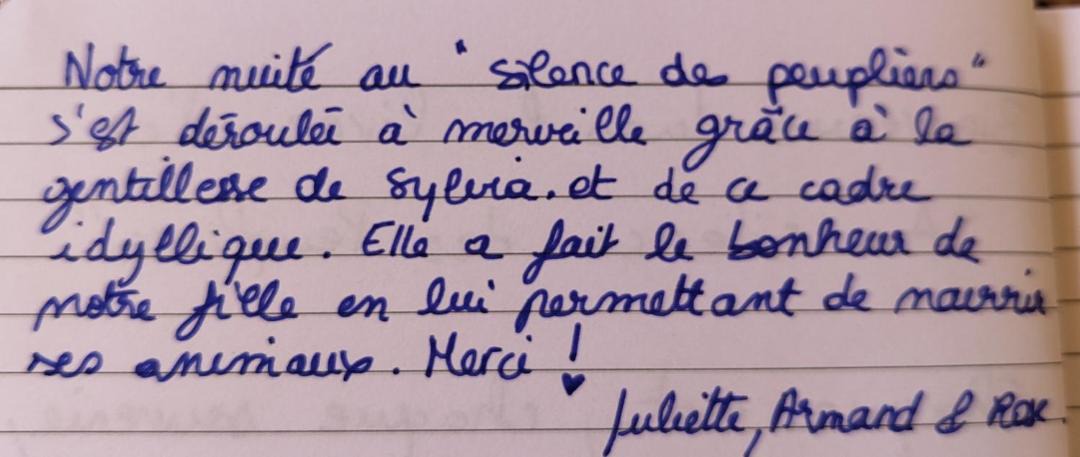 Notre nuité au "silence des peupliers"
s'est déroulée à merveille grâce à la
gentillesse de Sylvia. et de ce cadre
idyllique. Elle a fait le bonheur de
notre fille en lui permettant de nourrir
ses animaux. Merci !
Juliette, Armand & Rox.